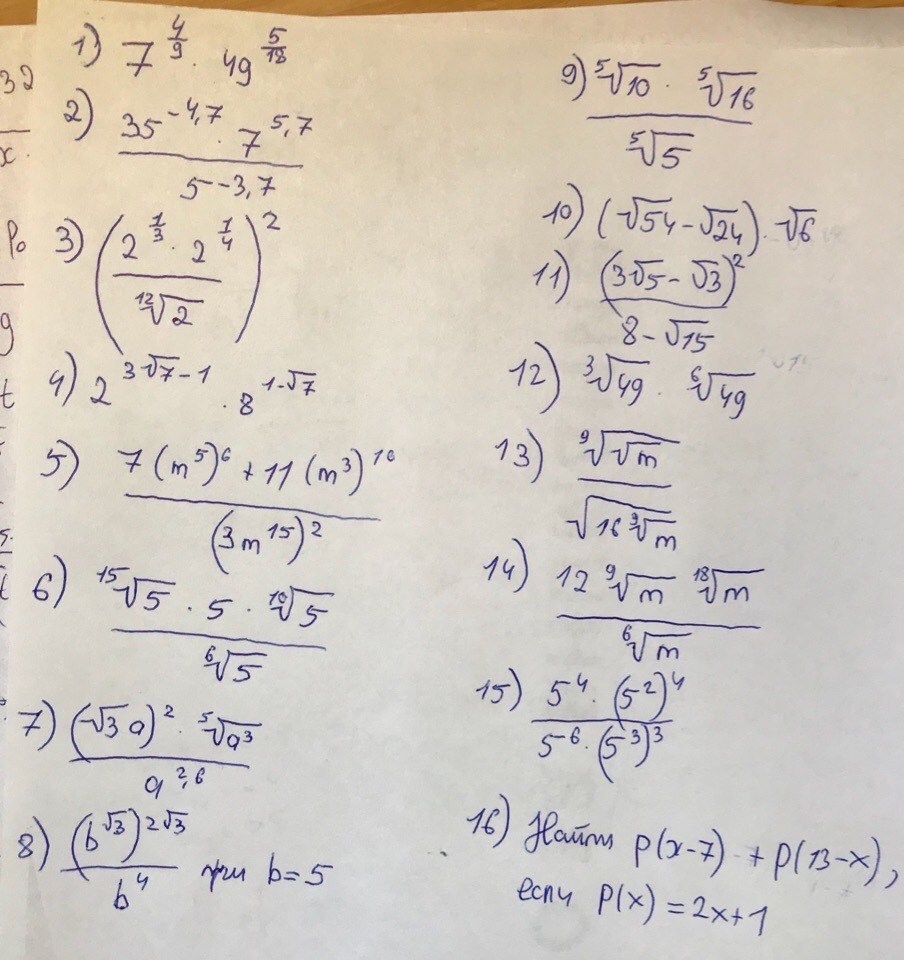 1) 7^{4/9} · 49^{5/18}
2) (35^{-4,7} · 7^{5,7}) / 5^{-3,7}
3) ((2^{1/3} · 2^{1/4}) / ¹²√2)²
4) 2^{3√7-1} · 8^{1-√7}
5) (7(m⁵)⁶ + 11(m³)¹⁰) / (3m¹⁵)²
6) (¹⁵√5 · 5 · ¹⁰√5) / ⁶√5
7) ((√3a)² · ⁵√a³) / a^{2,6}
8) (b^{√3})^{2√3} / b⁴ при b=5
9) (⁵√10 · ⁵√16) / ⁵√5
10) (√54-√24) · √6
11) (3√5-√3)² / (8-√15)
12) ³√49 · ⁶√49
13) ⁹√√m / √(16 ⁹√m)
14) (12 ⁹√m ¹⁸√m) / ⁶√m
15) (5⁴ · (5²)⁴) / (5⁻⁶ · (5³)³)
16) Найти p(x-7) + p(13-x),
если p(x) = 2x+1
32
x.
po
g
t